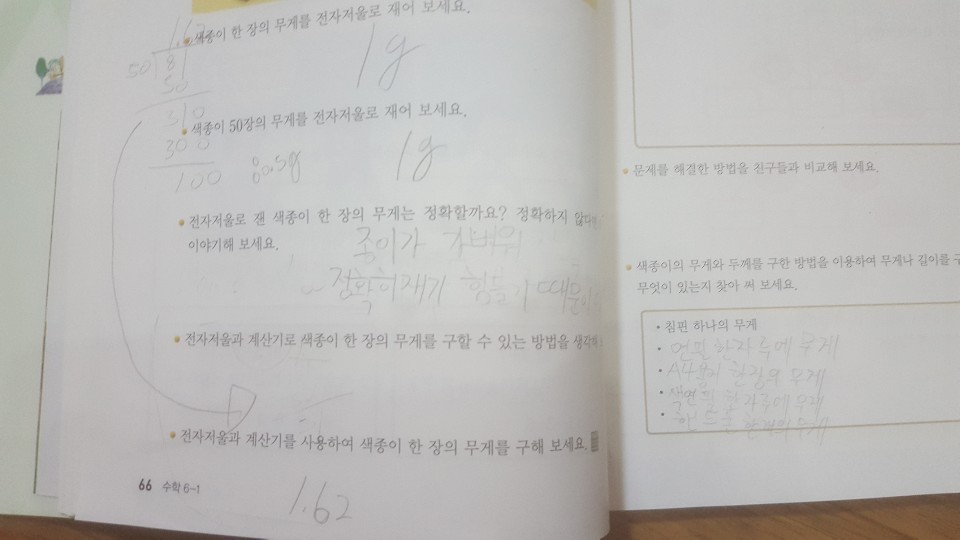 색종이 한 장의 무게를 전자저울로 재어 보세요.
1g
1.62
50 81
50
310
300
100
색종이 50장의 무게를 전자저울로 재어 보세요.
1g
전자저울로 잰 색종이 한 장의 무게는 정확할까요? 정확하지 않다면
이야기해 보세요.
종이가 가벼워
정확히재기 힘들기 때문
전자저울과 계산기로 색종이 한 장의 무게를 구할 수 있는 방법을 생각해
전자저울과 계산기를 사용하여 색종이 한 장의 무게를 구해 보세요.
1.62
66 수학 6-1
문제를 해결한 방법을 친구들과 비교해 보세요.
색종이의 무게와 두께를 구한 방법을 이용하여 무게나 길이를 구
무엇이 있는지 찾아 써 보세요.
• 침핀 하나의 무게
• 연필 한자루에 무게
• A4용지 한장의 무게